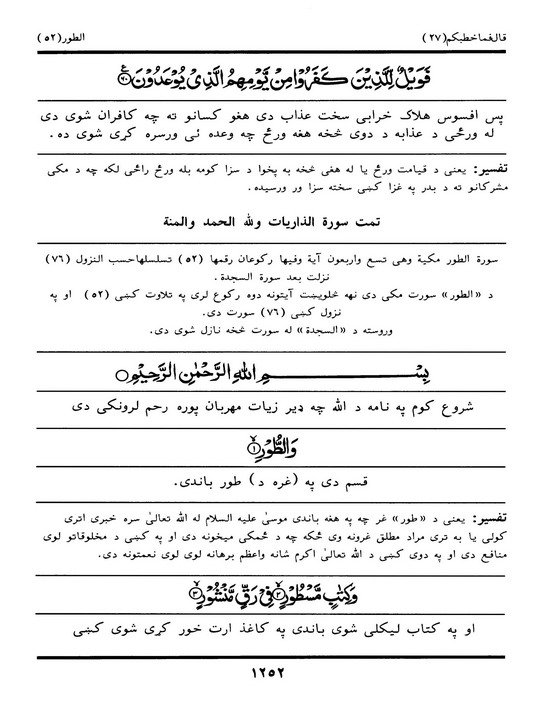 قال فما خطبكم (٢٧) الطور (٥٢)
فَوَيْلٌ لِّلَّذِيْنَ كَفَرُوْا مِنْ يَّوْمِهِمُ الَّذِيْ يُوْعَدُوْنَ ﴿٦٠﴾
پس افسوس هلاک خرابی سخت عذاب دی هغو کسانو ته چه کافران شوی دی
له ورځی د عذابه د دوی څخه هغه ورځ چه وعده ئی ورسره کړی شوی ده.
تفسیر: یعنی د قیامت ورځ یا له هغی څخه په پخوا د سزا کومه بله ورځ راځی لکه چه د مکی
مشرکانو ته د بدر په غزا کښی سخته سزا ور ورسیده.
تمت سورة الذاریات ولله الحمد والمنة
سورة الطور مکیة وهی تسع واربعون آیة وفیها رکوعان رقمها (٥٢) تسلسلها حسب النزول (٧٦)
نزلت بعد سورة السجدة.
د «الطور» سورت مکی دی نهه څلویښت آیتونه دوه رکوع لری په تلاوت کښی (٥٢) او په
نزول کښی (٧٦) سورت دی.
وروسته د «السجدة» له سورت څخه نازل شوی دی.
بِسْمِ اللّٰهِ الرَّحْمٰنِ الرَّحِيْمِ
شروع کوم په نامه د الله چه ډیر زیات مهربان پوره رحم لرونکی دی
وَالطُّوْرِ ﴿١﴾
قسم دی په (غره د) طور باندی.
تفسیر: یعنی د «طور» غر چه په هغه باندی موسیٰ علیه السلام له الله تعالیٰ سره خبری اتری
کولی یا به تری مراد مطلق غرونه وی ځکه چه د ځمکی میخونه دی او په کښی د مخلوقاتو لوی
منافع دی او په دوی کښی د الله تعالیٰ اکرم شانه واعظم برهانه لوی لوی نعمتونه دی.
وَكِتٰبٍ مَّسْطُوْرٍ ﴿٢﴾ فِيْ رَقٍّ مَّنْشُوْرٍ ﴿٣﴾
او په کتاب لیکلی شوی باندی په کاغذ ارت خور کړی شوی کښی
١٢٥٢